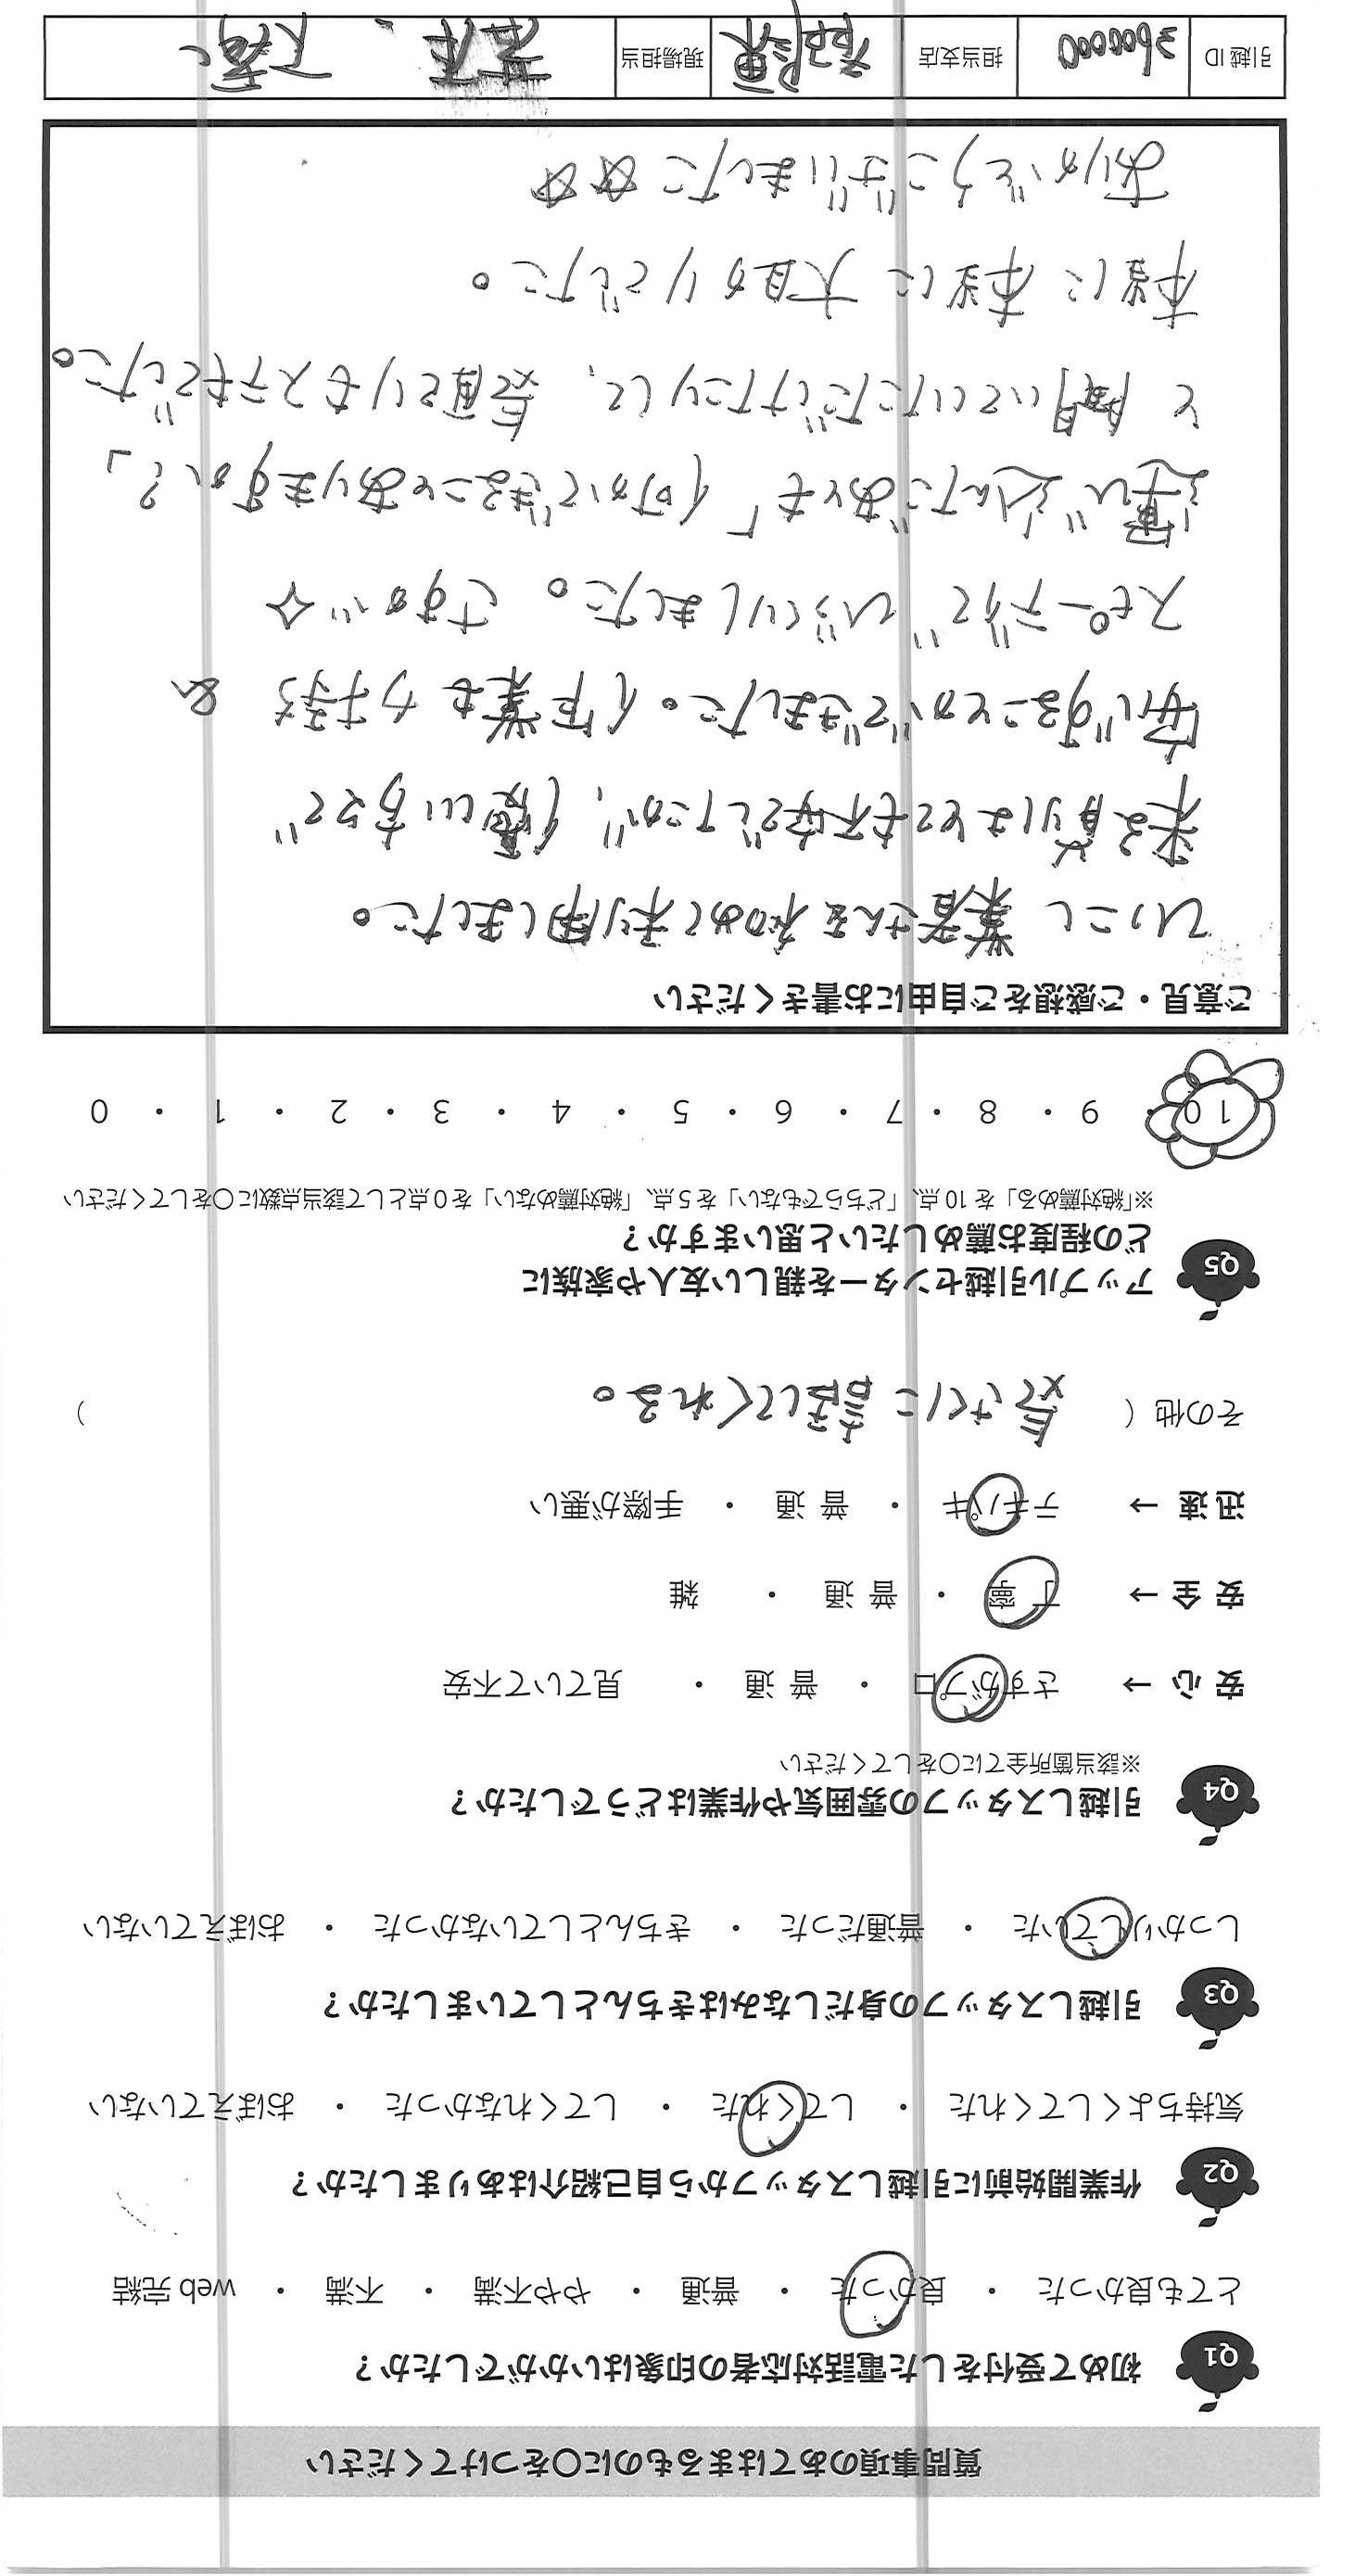 質問事項のあてはまるものに〇をつけてください
Q1 初めて受付をした電話対応者の印象はいかがでしたか？
とても良かった ・ 良かった ・ 普通 ・ やや不満 ・ 不満 ・ web 完結
Q2 作業開始前に引越しスタッフから自己紹介はありましたか？
気持ちよくしてくれた ・ してくれた ・ してくれなかった ・ おぼえていない
Q3 引越しスタッフの身だしなみはきちんとしていましたか？
しっかりしていた ・ 普通だった ・ きちんとしていなかった ・ おぼえていない
Q4 引越しスタッフの雰囲気や作業はどうでしたか？
※該当箇所全てに〇をしてください
安 心 → さすがプロ ・ 普 通 ・ 見ていて不安
安 全 → 丁 寧 ・ 普 通 ・ 雑
迅 速 → テキパキ ・ 普 通 ・ 手際が悪い
その他（ 気さくに話してくれる。 ）
Q5 アップル引越センターを親しい友人や家族に
どの程度お薦めしたいと思いますか？
※「絶対薦める」を 10 点、「どちらでもない」を 5 点、「絶対薦めない」を 0 点として該当点数に〇をしてください
10 ・ 9 ・ 8 ・ 7 ・ 6 ・ 5 ・ 4 ・ 3 ・ 2 ・ 1 ・ 0
ご意見・ご感想をご自由にお書きください
ひっこし業者さんを初めて利用しました。
来る前はとても不安でしたが、優しい方々で
安心することができました。作業も力持ち &
スピーディでびっくりしました。さすが✧
運び込んだあとも「何かできることありますか？」
と聞いていただけたりして、気配りもステキでした。
本当に本当に大助かりでした。
ありがとうございました☆☆
引越 ID 担当支店 現場担当